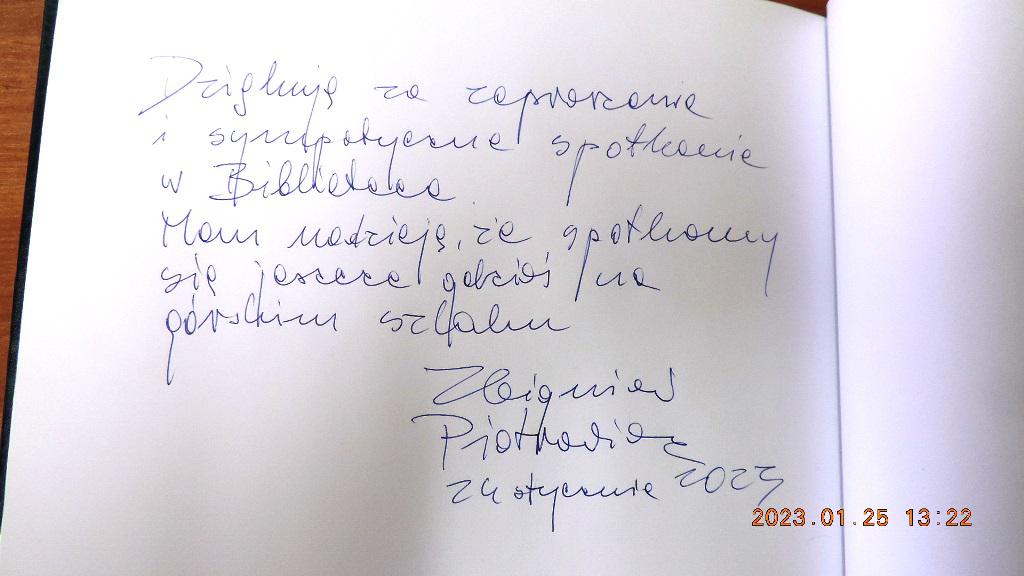 Dziękuję za zaproszenie
i sympatyczne spotkanie
w Bibliotece.
Mam nadzieję, że spotkamy
się jeszcze gdzieś na
górskim szlaku
Zbigniew
24 stycznia 2023
2023.01.25 13:22